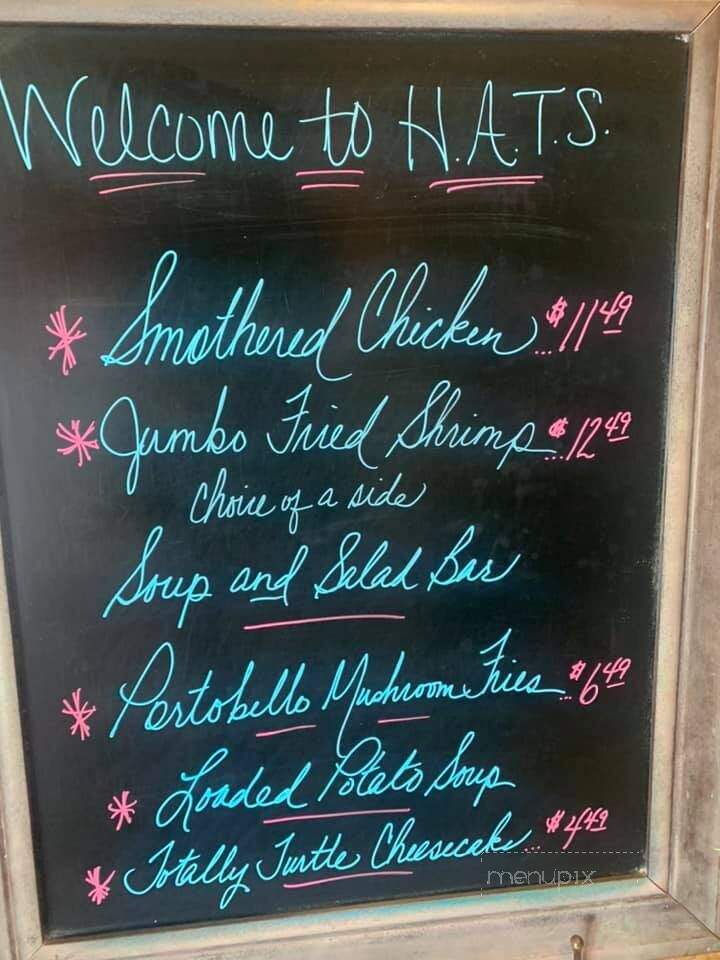 Welcome to H.A.T.S.
* Smothered Chicken ... $11 49
* Jumbo Fried Shrimp ... $12 49
choice of a side
Soup and Salad Bar
* Portobello Mushroom Fries ... $6 49
* Loaded Potato Soup
* Totally Turtle Cheesecake ... $4 49
menupix